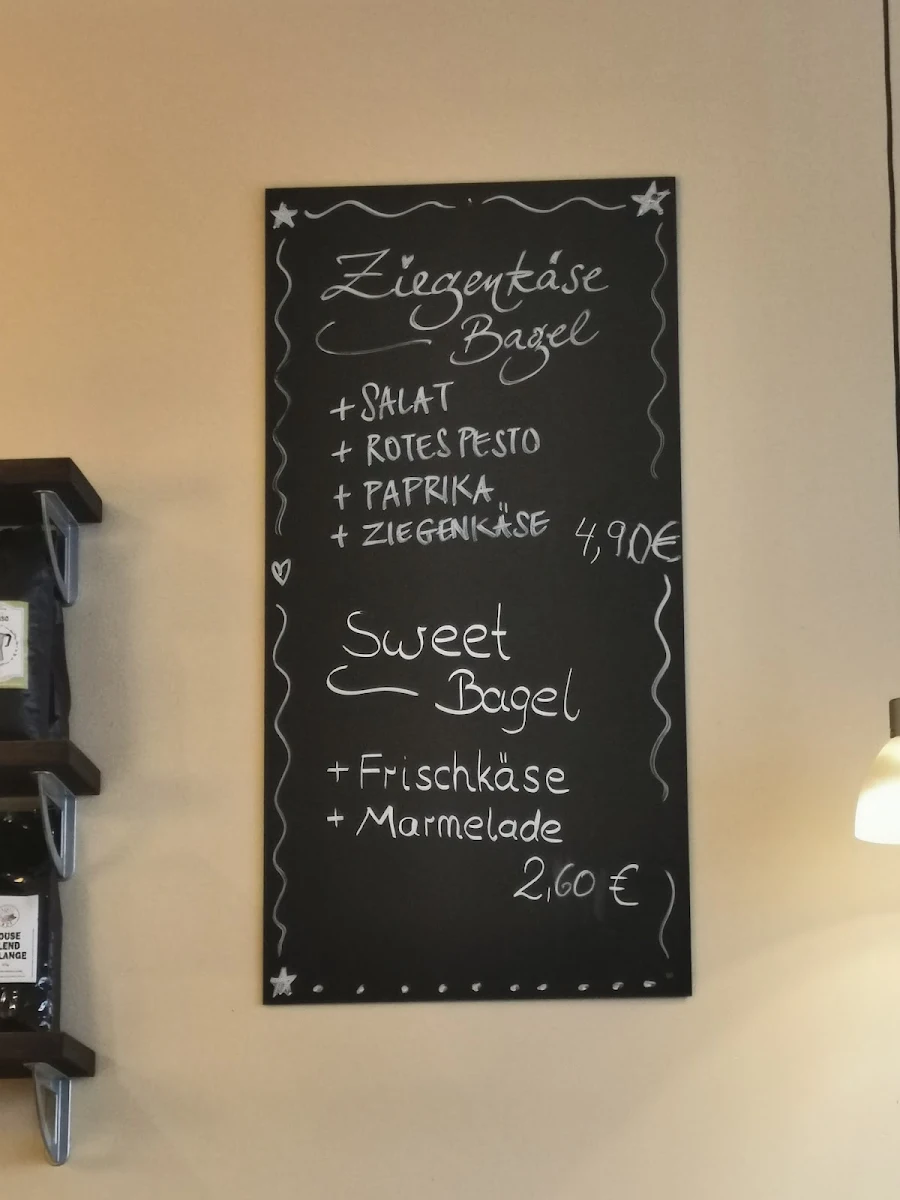 Ziegenkäse
Bagel
+ SALAT
+ ROTES PESTO
+ PAPRIKA
+ ZIEGENKÄSE 4,90€
Sweet
Bagel
+ Frischkäse
+ Marmelade
2,60 €